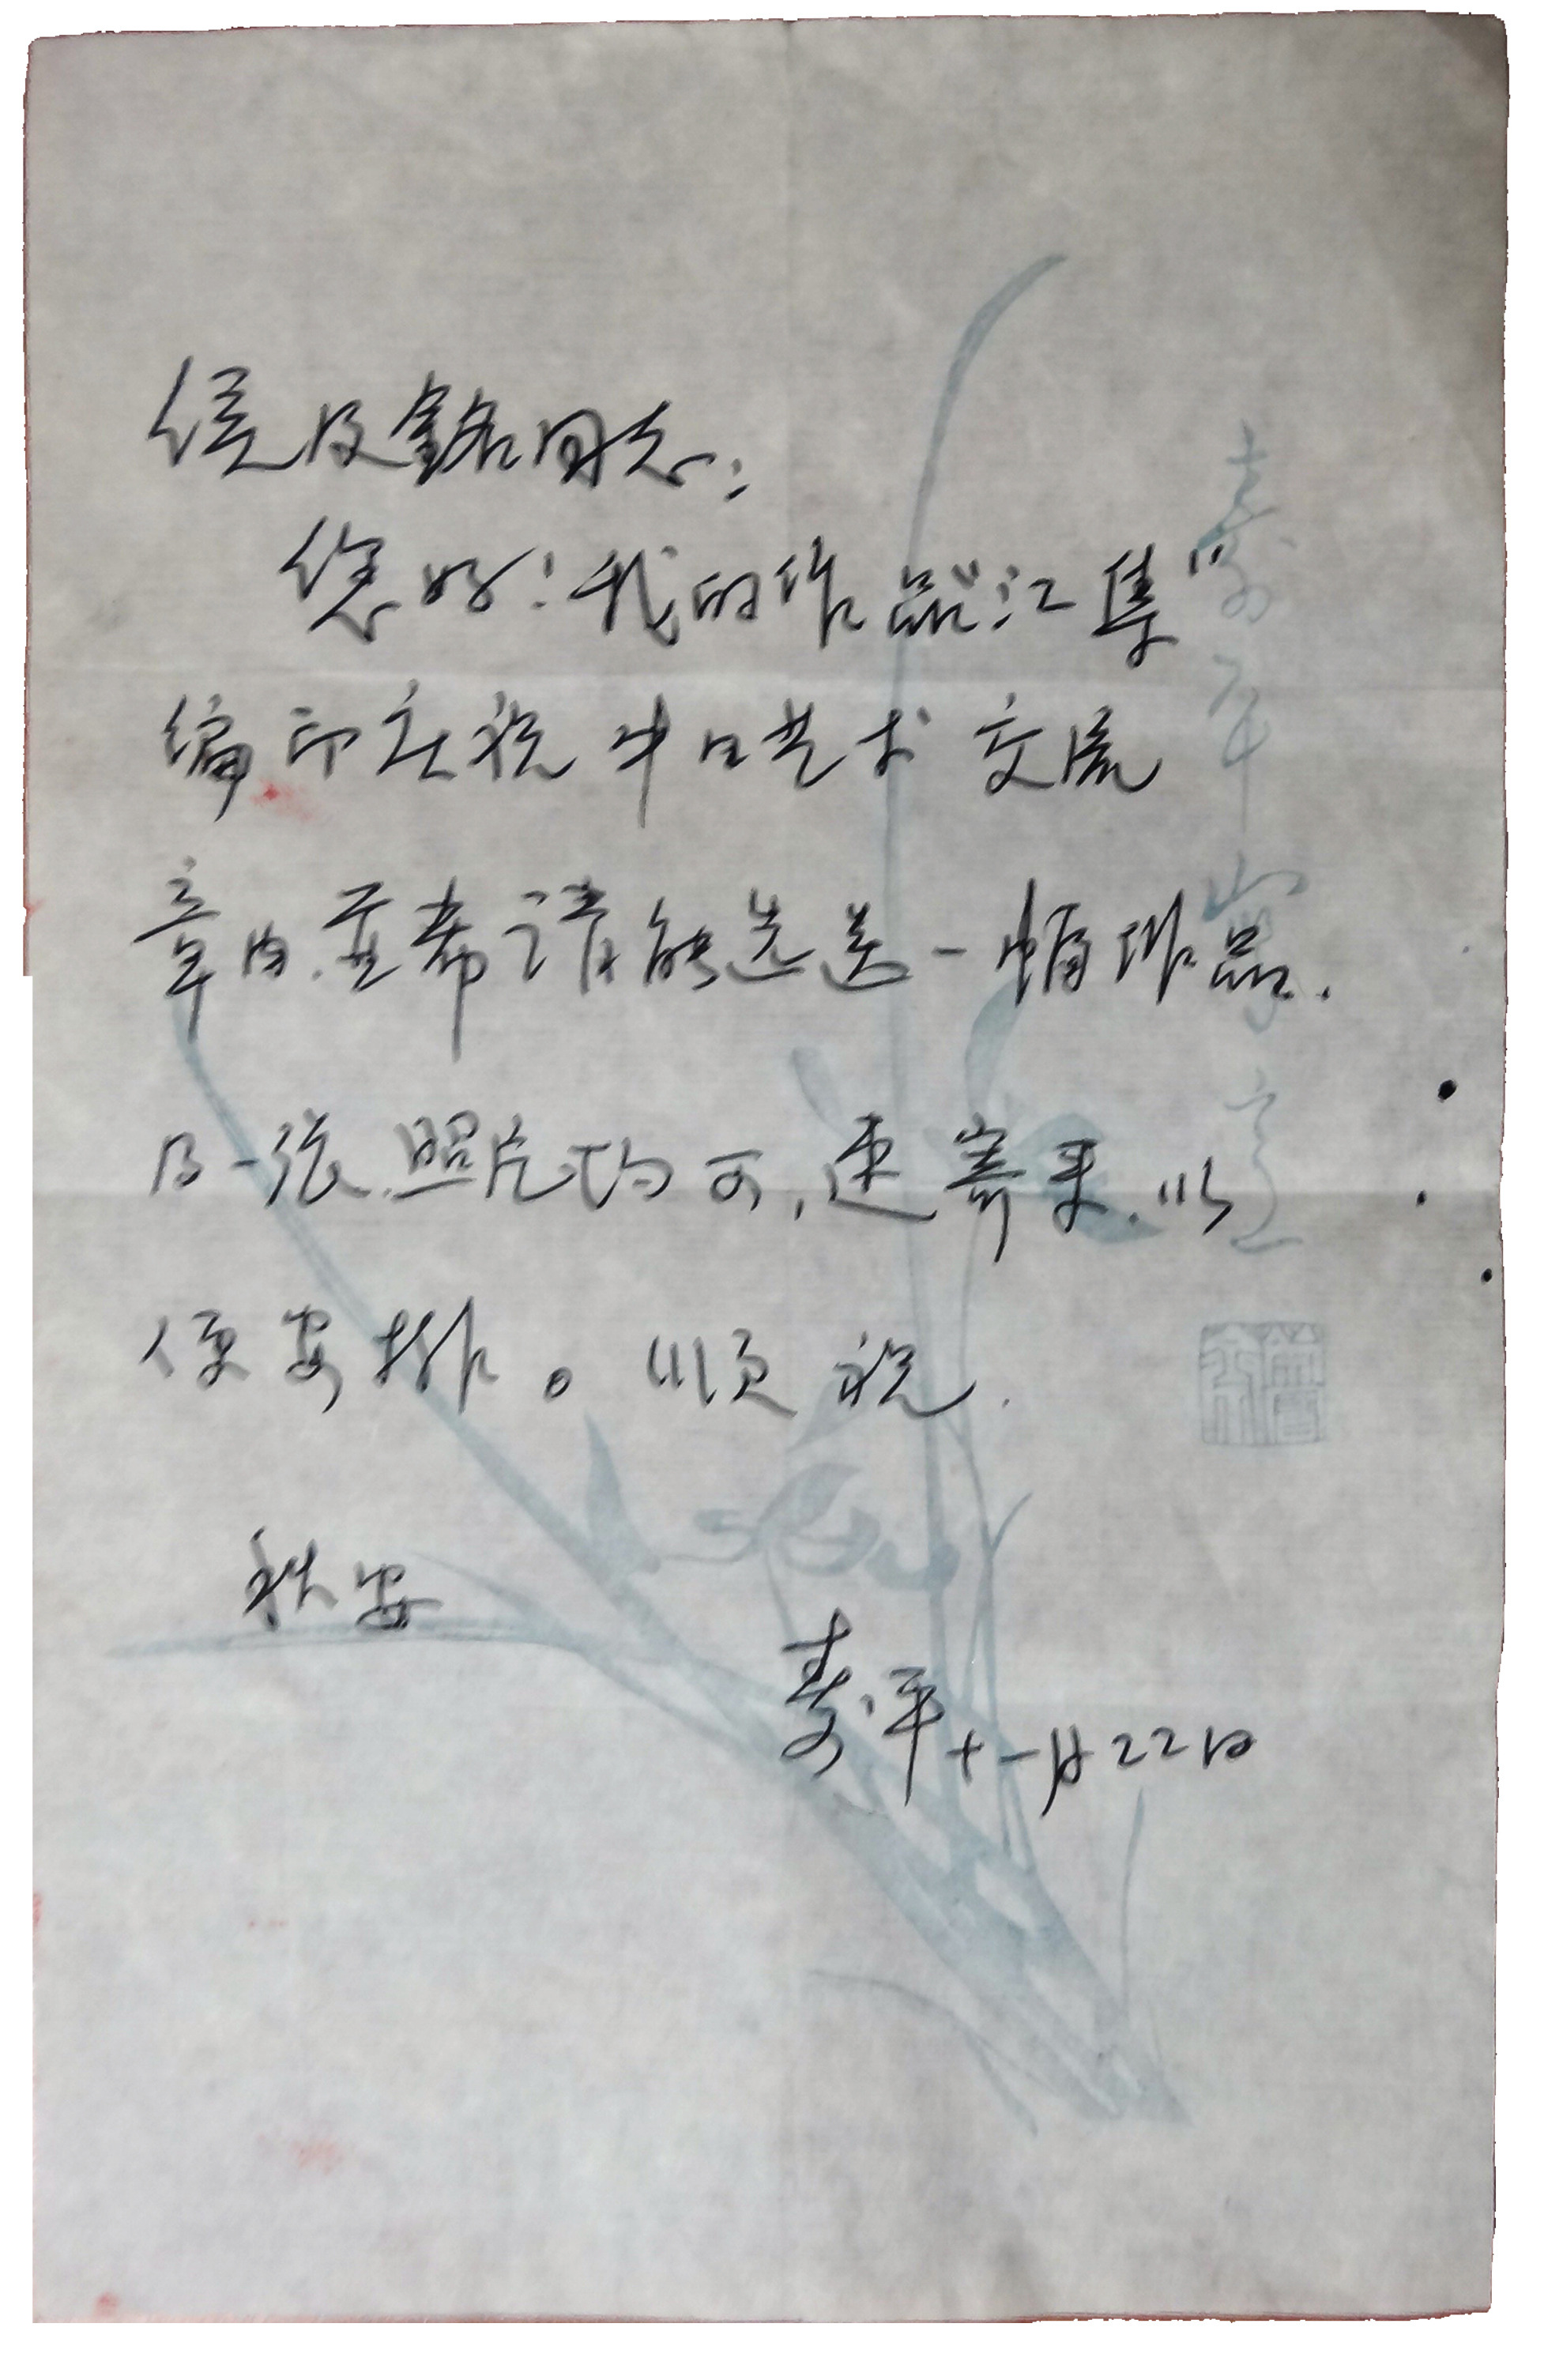 侯及銘同志：
您好！我的作品“汇集”
编印在祝中日艺术交流
章内，并希请能选送一幅作品．
及一张照片均可，速寄来．以
便安排。顺祝．
秋安
寿平十一月22日
寿平